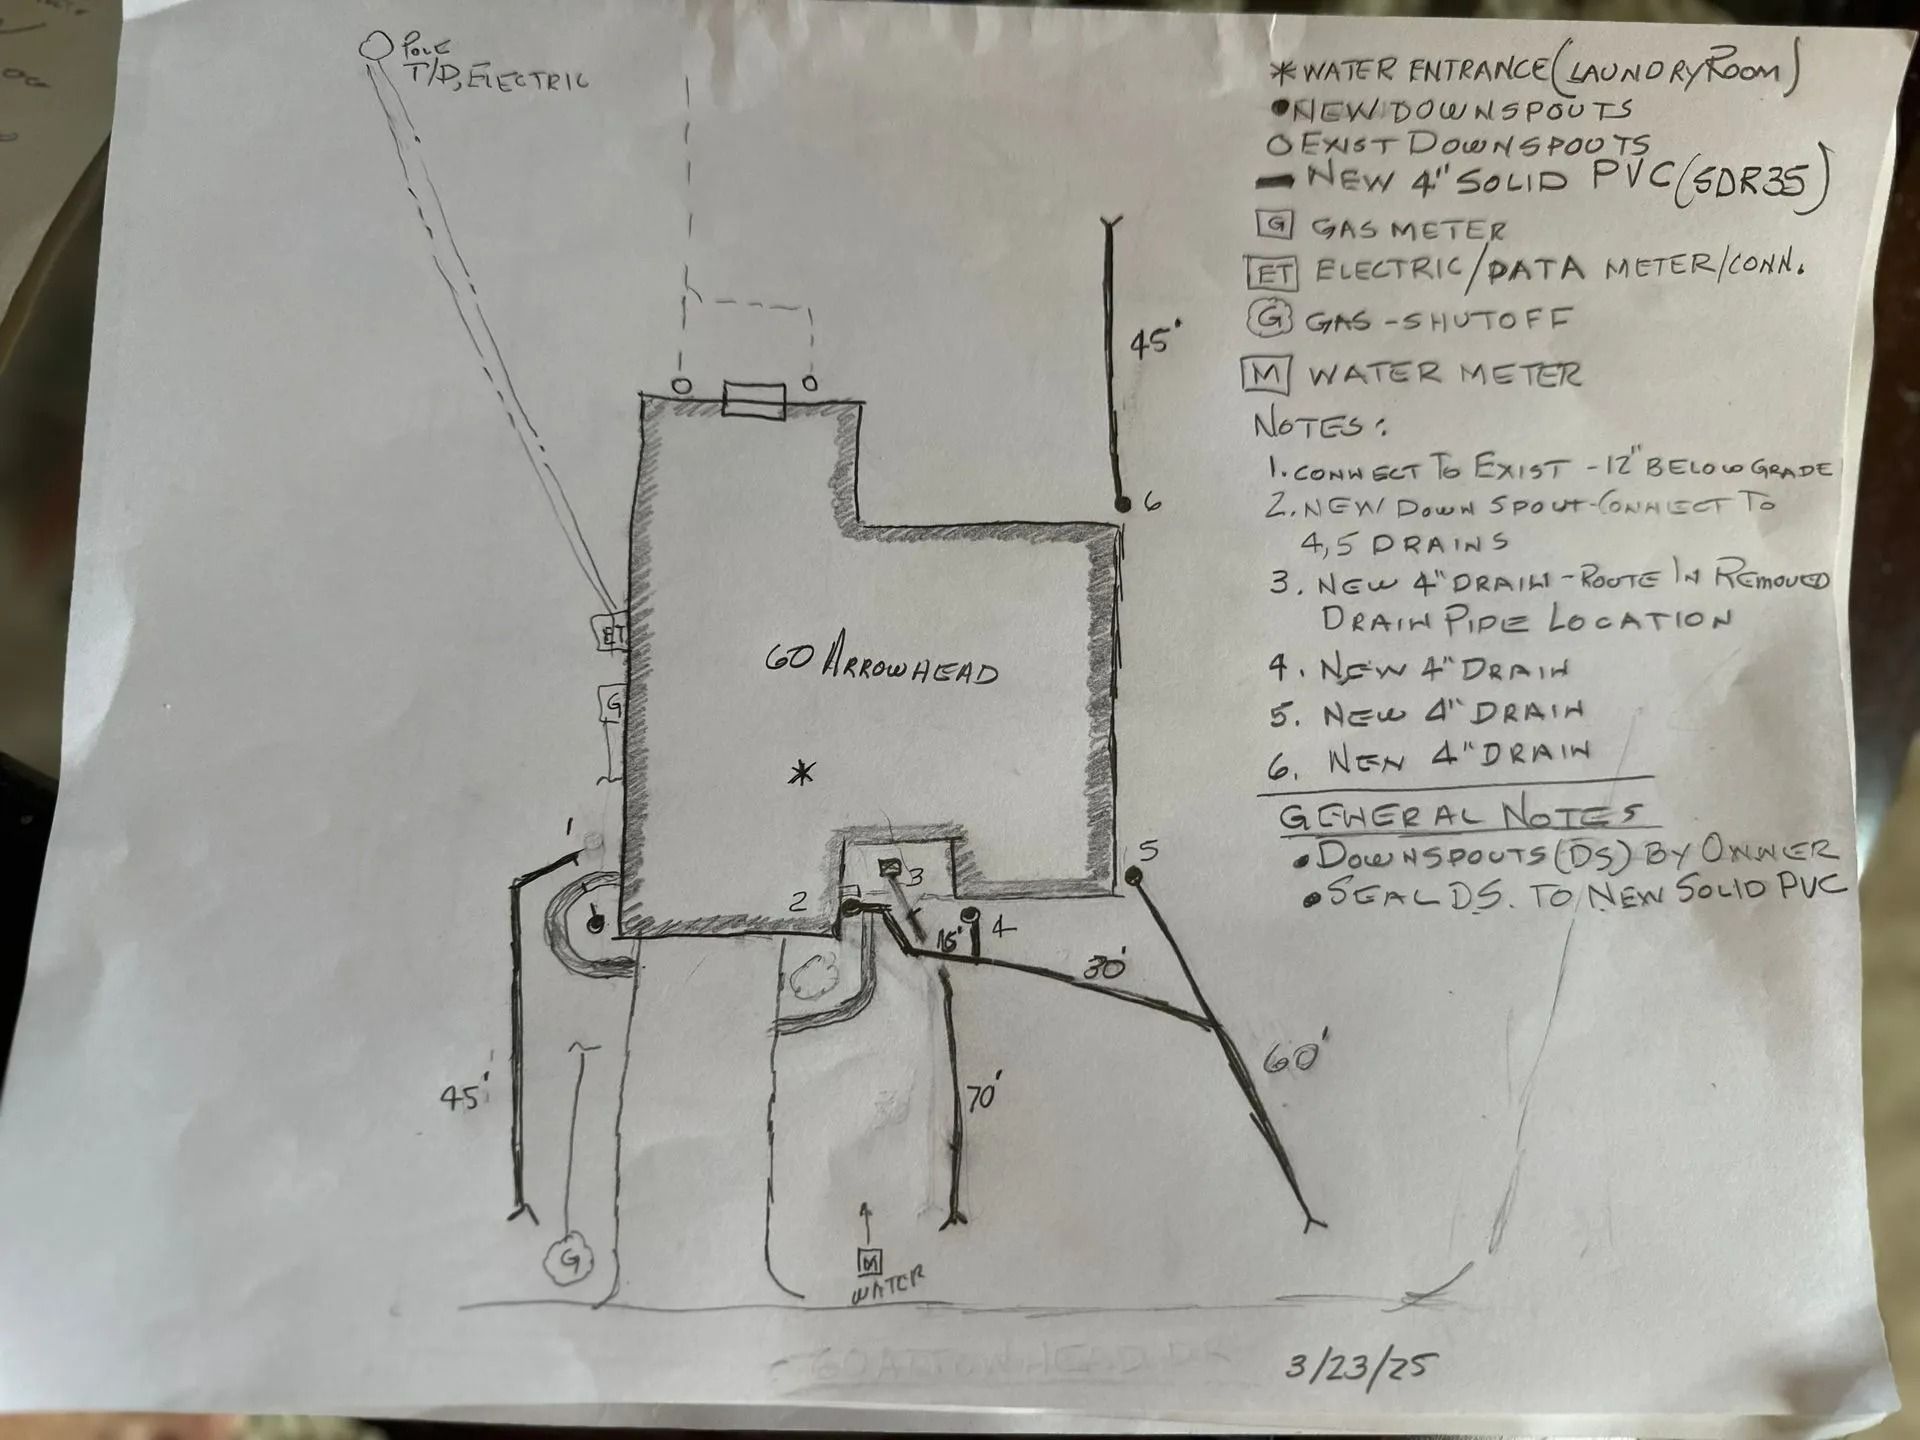 POLE
T/D, ELECTRIC
* WATER ENTRANCE (LAUNDRY ROOM)
NEW DOWNSPOUTS
EXIST DOWNSPOUTS
NEW 4" SOLID PVC (SDR35)
G GAS METER
ET ELECTRIC/DATA METER/CONN.
G GAS-SHUTOFF
M WATER METER
NOTES:
1. CONNECT TO EXIST - 12" BELOW GRADE
2. NEW DOWN SPOUT-CONNECT TO
4,5 DRAINS
3. NEW 4" DRAIN - ROUTE IN REMOVED
DRAIN PIPE LOCATION
4. NEW 4" DRAIN
5. NEW 4" DRAIN
6. NEW 4" DRAIN
GENERAL NOTES
• DOWNSPOUTS (DS) BY OWNER
• SEAL DS. TO NEW SOLID PVC
45'
6
ET
G
60 ARROWHEAD
*
1
2
3
4
5
15'
30'
60'
45'
70'
G
M
WATER
60 ARROWHEAD DR
3/23/25